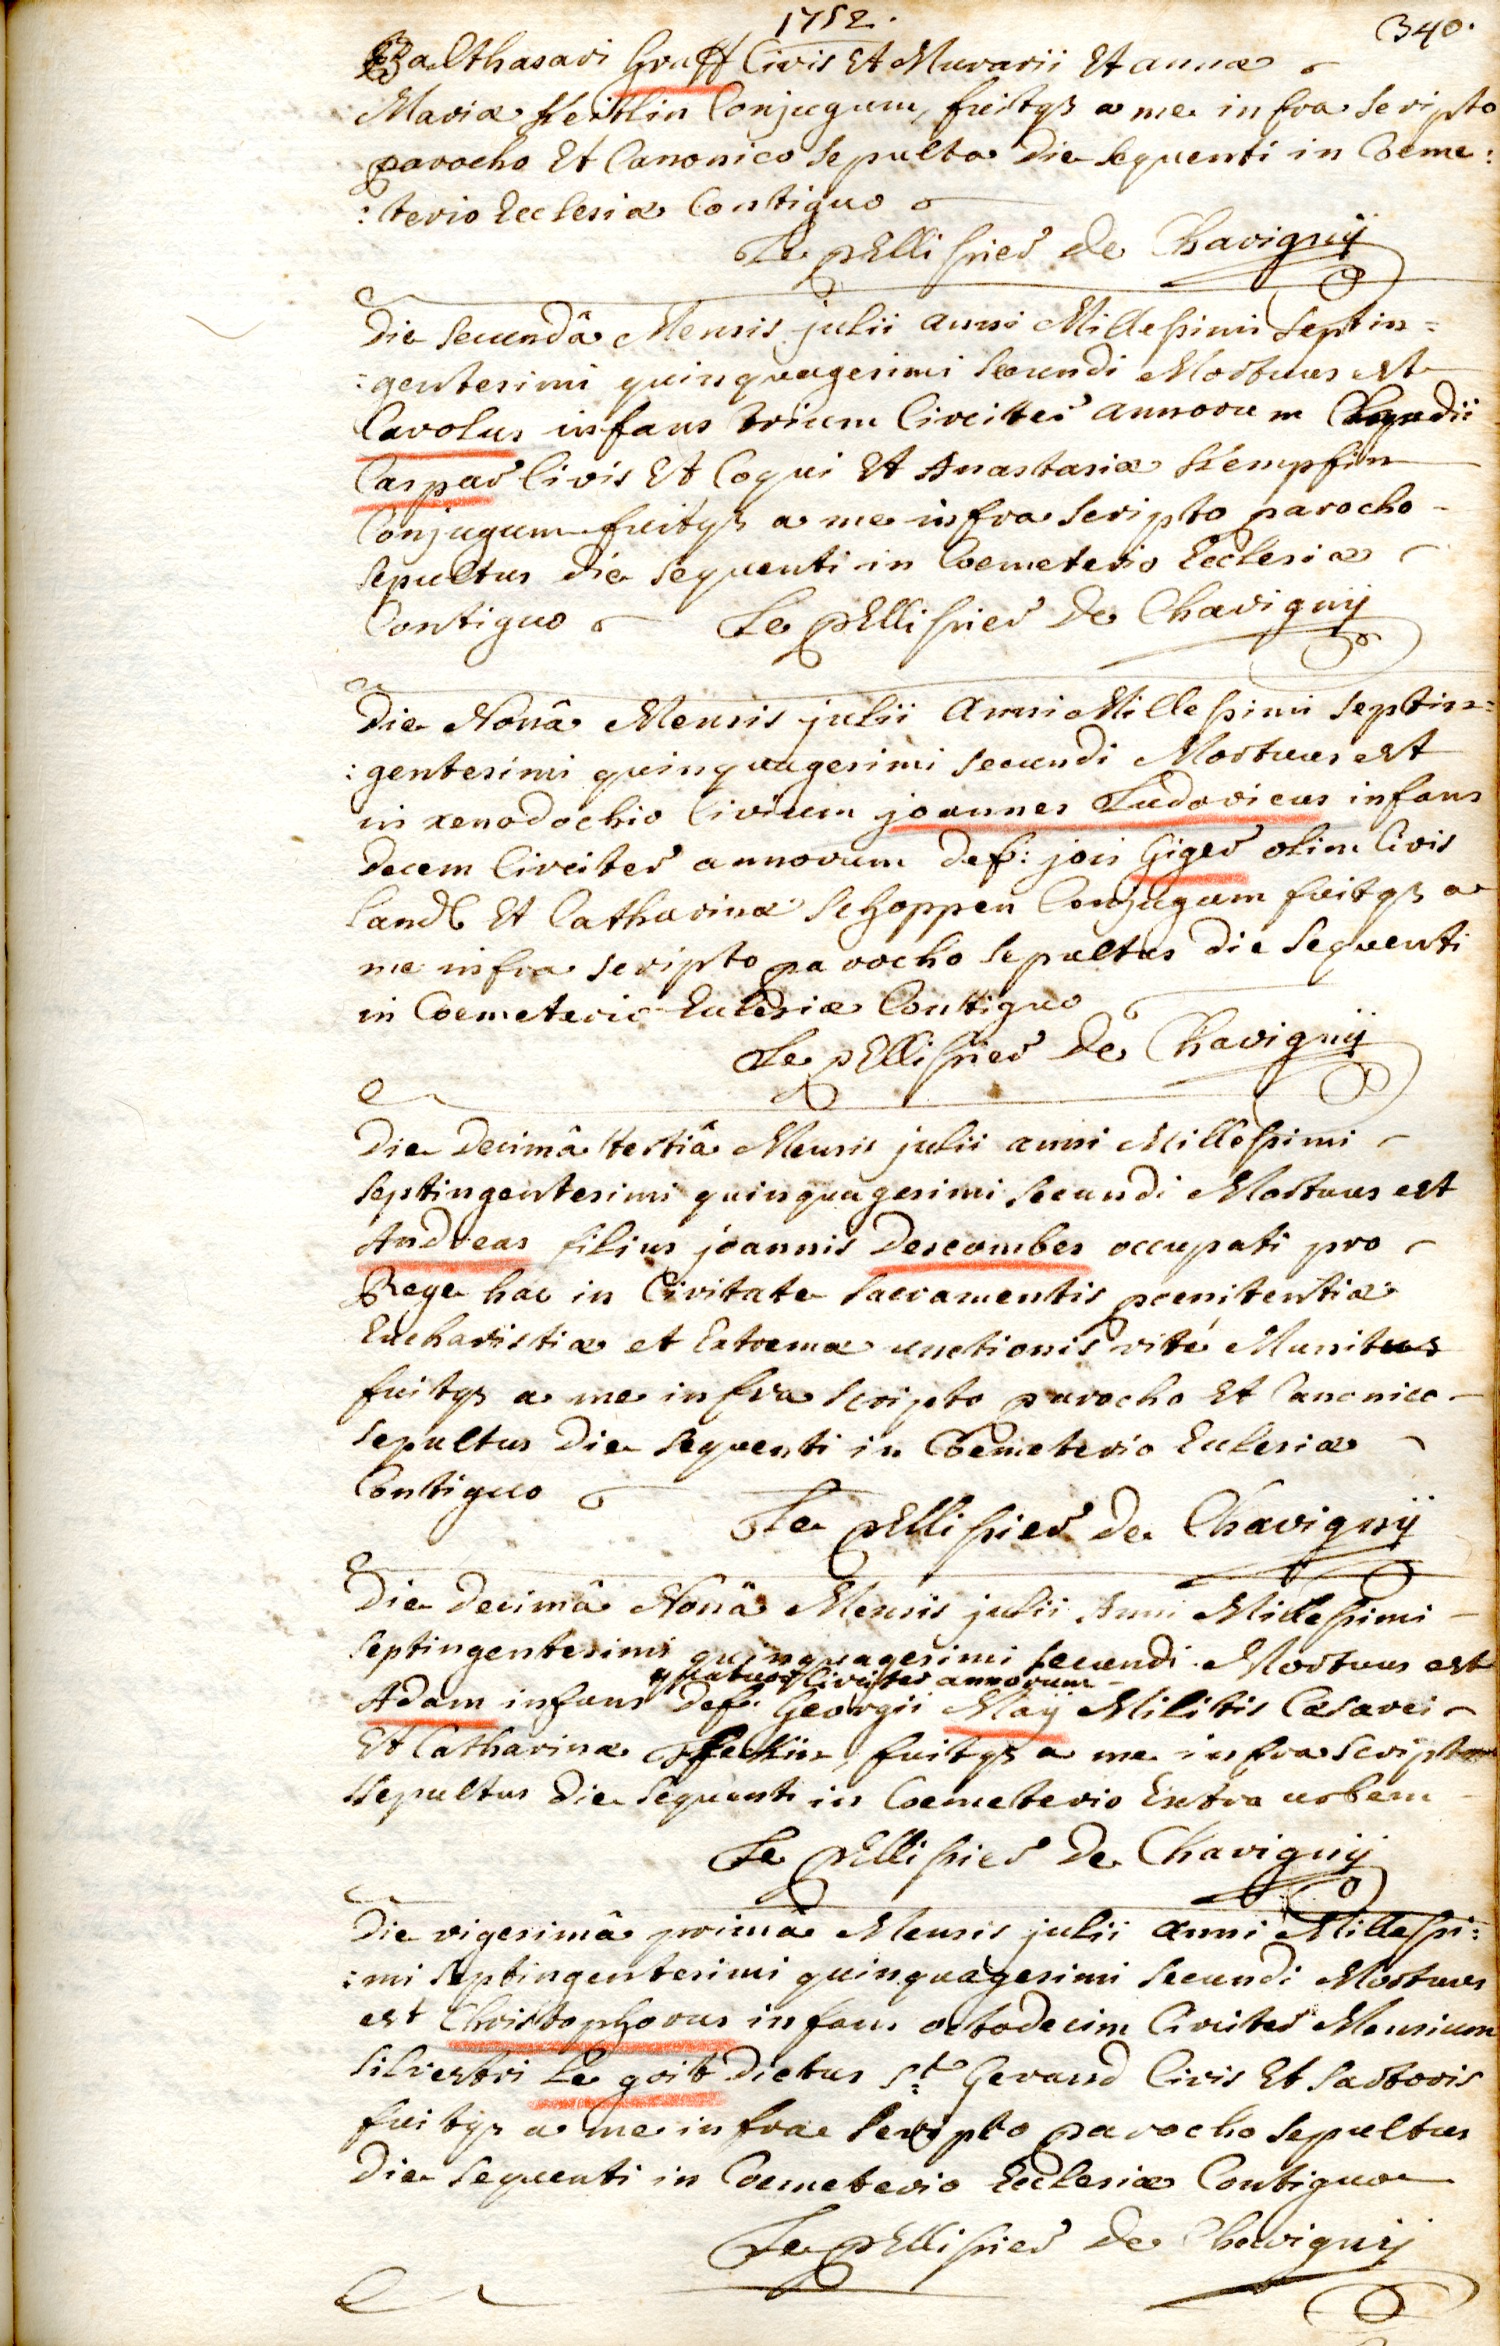 1752.
340.
Balthasari Graff Civis Et Murarii Et annæ
Mariæ Keitlin Conjugum, fuitqȝ a me infra scripto
parocho Et Canonico sepulta die sequenti in Coeme:
:terio Ecclesiæ Contiguo
Le pEllissier de Chavignÿ
Die secundâ Mensis julii anni Millesimi septin=
:gentesimi quinquagesimi secundi Mortuus est
Carolus infans trium Circiter annorum
Caspar Civis Et Coqui Et Anastasiæ Kempfin
Conjugum fuitqȝ a me infra scripto parocho
sepultus die sequenti in Coemeterio Ecclesiæ
Contiguo Le pEllissier De Chavignÿ
Die Nonâ Mensis julii Anni Millesimi septin=
:gentesimi quinquagesimi secundi Mortuus est
in xenodochio Civium joannes Ludovicus infans
decem Circiter annorum def: jois Giger olim Civis
Land: Et Catharinæ Schoppen Conjugum fuitqȝ a
me infra scripto parocho sepultus die sequenti
in Coemeterio Eclesiæ Contiguo
Le pEllissier de Chavignÿ
Die Decimâ tertiâ Mensis julii anni Millesimi
septingentesimi quinquagesimi secundi Mortuus est
Andreas filius joannis Descombes occupati pro
Rege hac in Civitate sacramentis pœnitentiæ
Eucharistiæ et Extremæ unctionis rité Munitus
fuitqȝ a me infra scripto parocho Et Canonico
sepultus Die sequenti in Coemeterio Eclesiæ
Contiguo
Le pEllissier de Chavignÿ
Die Decimâ Nonâ Mensis julii Anni Millesimi
septingentesimi quinquagesimi secundi Mortuus est
quatuor Circiter annorum
Adam infans def. Georgii Maÿ Militis Cæsarei
Et Catharinæ fuitqȝ a me infra scripto
sepultus Die sequenti in Coemeterio Extra urbem
Le pEllissier De Chavignÿ
Die vigesimâ primâ Mensis julii anni Millessi:
:mi septingentesimi quinquagesimi secundi Mortuus
est Christophorus infans octodecim Circiter Mensium
silvestri Le goit Dictus St Gerand Civis Et sartoris
fuitqȝ a me infra scripto parocho sepultus
Die sequenti in Coemeterio Ecclesiæ Contiguo
Le pEllissier de Chavignÿ